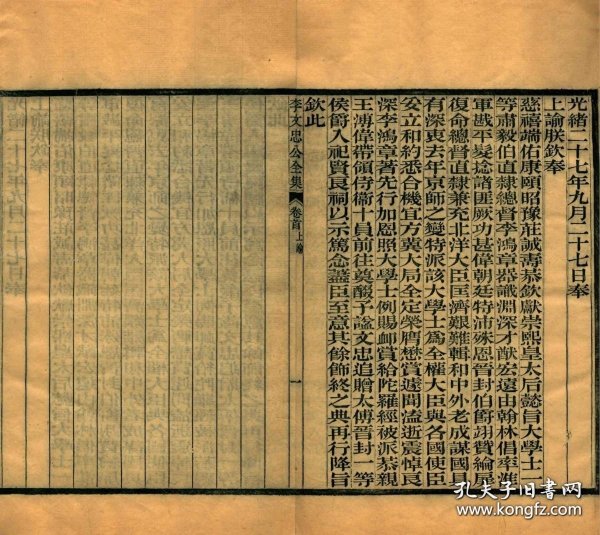 光緒二十七年九月二十七日奉
上諭朕欽奉
慈禧端佑康頤昭豫莊誠壽恭欽獻崇熙皇太后懿旨大學士一
等肅毅伯直隸總督李鴻章器識淵深才猷宏遠由翰林倡率淮
軍戡平髮捻諸匪厥功甚偉朝廷特沛殊恩晉封伯爵翊贊綸扉
復命總督直隸兼充北洋大臣匡濟艱難輯和中外老成謀國具
有深衷去年京師之變特派該大學士爲全權大臣與各國使臣
妥立和約悉合機宜方冀大局全定榮膺懋賞遽聞溘逝震悼良
深李鴻章著先行加恩照大學士例賜卹賞給陀羅經被派恭親
王溥偉帶領侍衞十員前往奠醊予諡文忠追贈太傅晉封一等
侯爵入祀賢良祠以示篤念藎臣至意其餘飾終之典再行降旨
欽此
李文忠公全集
卷首上諭
一
孔夫子旧书网
www.kongfz.com